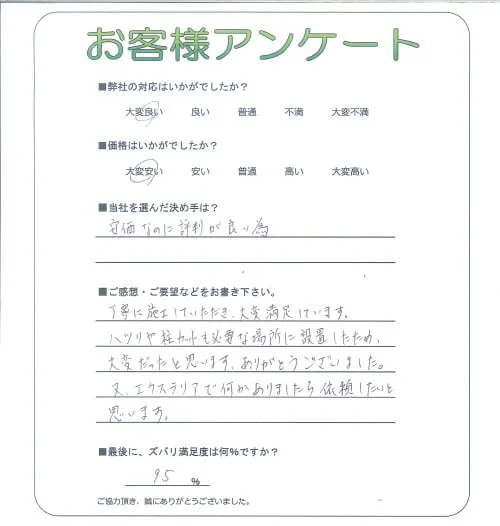 お客様アンケート
■弊社の対応はいかがでしたか？
大変良い 良い 普通 不満 大変不満
■価格はいかがでしたか？
大変安い 安い 普通 高い 大変高い
■当社を選んだ決め手は？
安価なのに評判が良い為
■ご感想・ご要望などをお書き下さい。
丁寧に施工していただき、大変満足しています。
ハツリや柱カットも必要な場所に設置したため、
大変だったと思います、ありがとうございました。
又、エクステリアで何かありましたら依頼したいと
思います。
■最後に、ズバリ満足度は何％ですか？
95 ％
ご協力頂き、誠にありがとうございました。